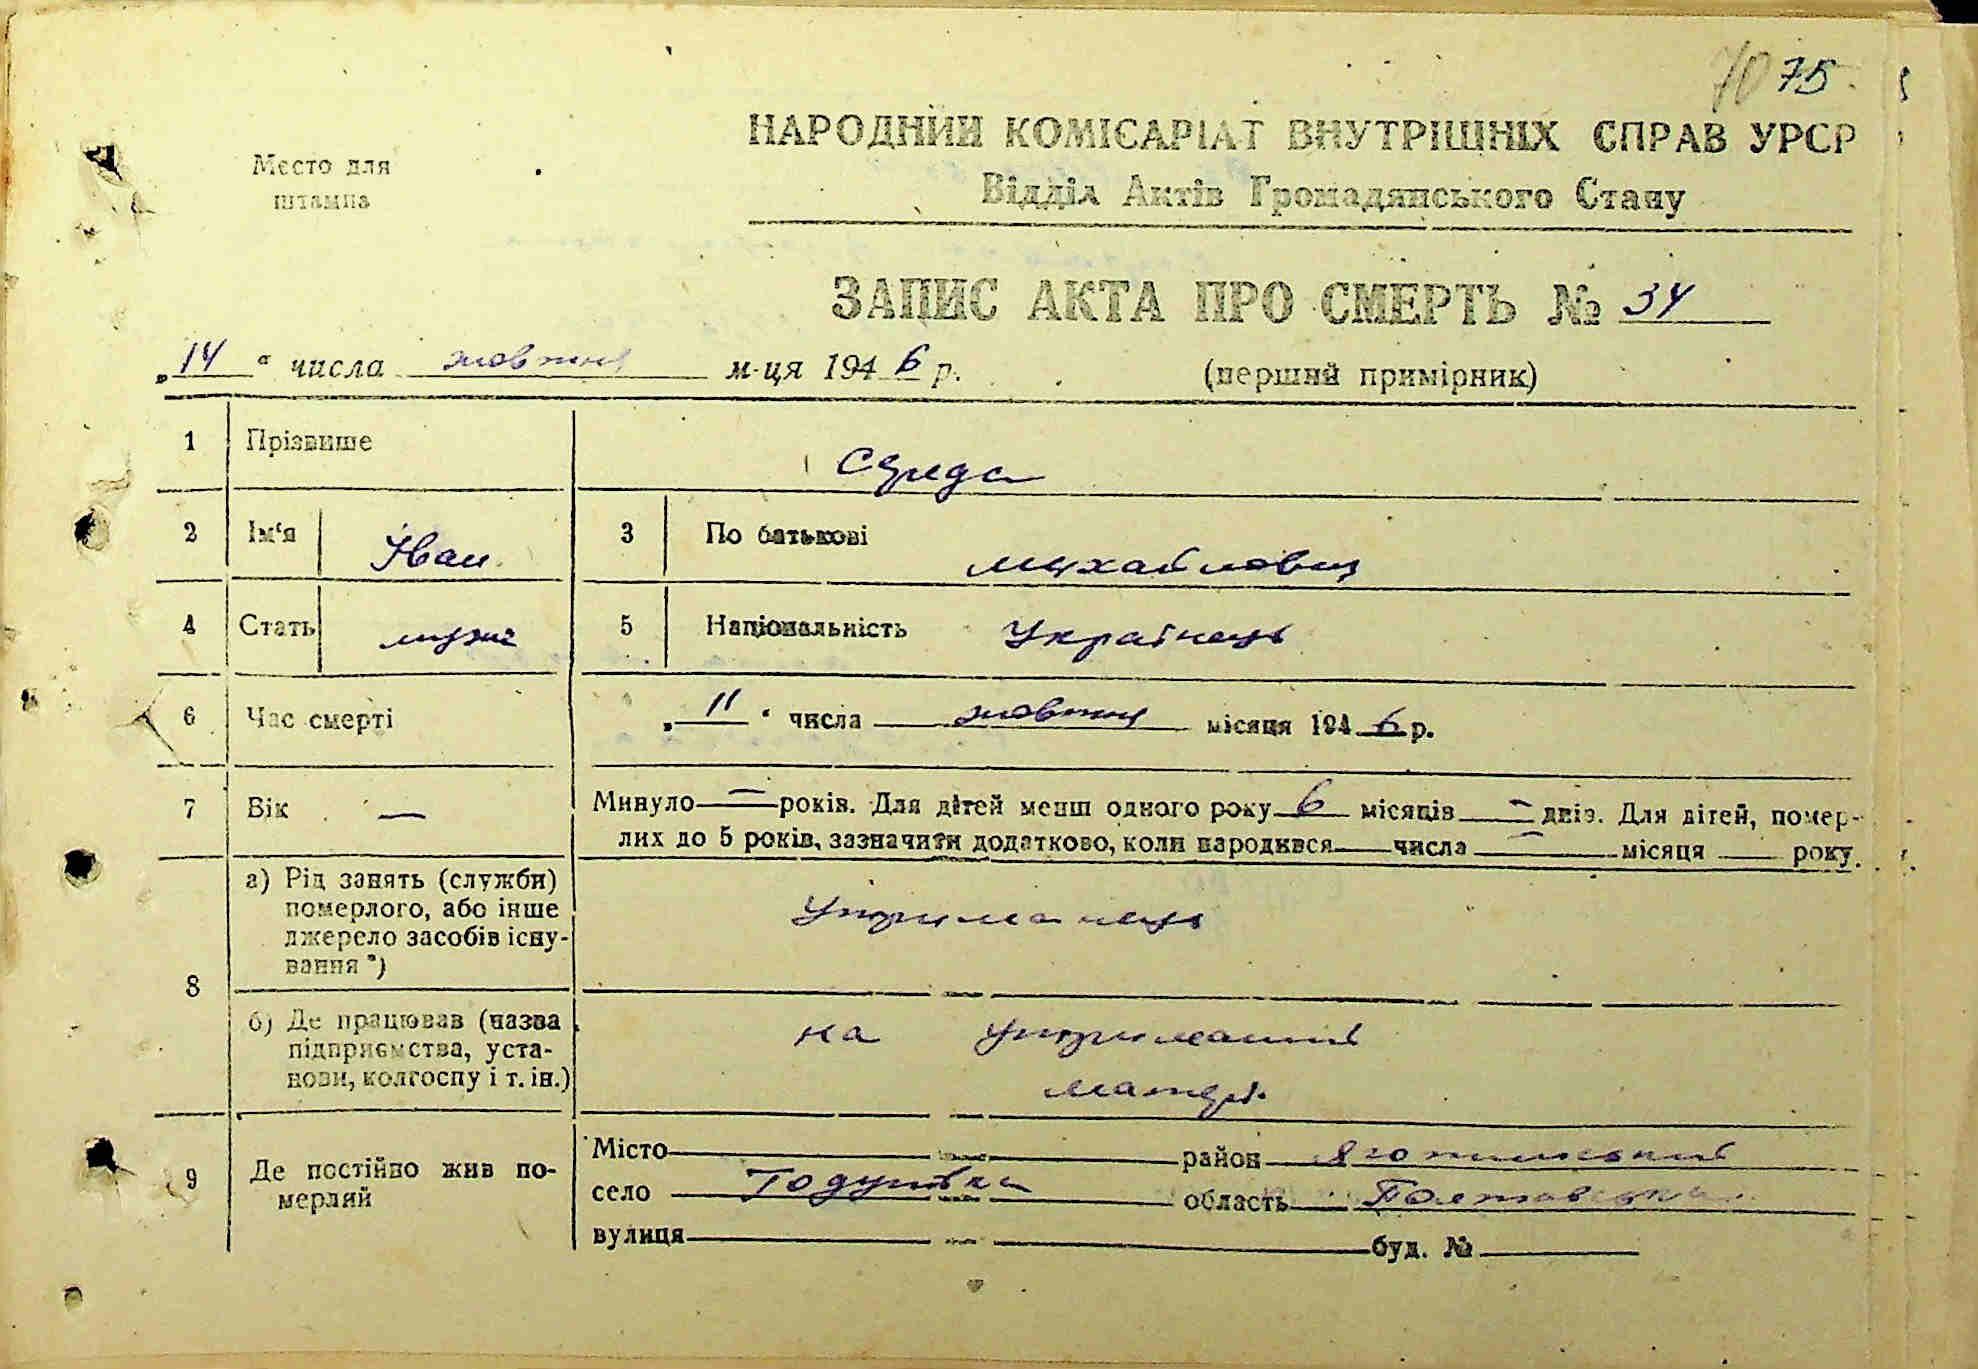 70 75
НАРОДНИЙ КОМІСАРІАТ ВНУТРІШНІХ СПРАВ УРСР
Место для
штампа
Відділ Актів Громадянського Стану
ЗАПИС АКТА ПРО СМЕРТЬ № 34
„14“ числа жовтня м-ця 1946 р. (перший примірник)
1 Прізвище Середа
2 Ім‘я Іван 3 По батькові Михайлович
4 Стать мужс 5 Національність Українець
6 Час смерті „11“ числа жовтня місяця 1946 р.
7 Вік — Минуло — років. Для дітей менш одного року 6 місяців — днів. Для дітей, помер-
лих до 5 років, зазначити додатково, коли народився — числа — місяця — року.
8 а) Рід занять (служби)
померлого, або інше
джерело засобів існу-
вання *)
Утриманець
б) Де працював (назва
підприємства, уста-
нови, колгоспу і т. ін.)
на утриманні
матері.
9 Де постійно жив по-
мерлий
Місто район Яготинський
село Годунівка область Полтавська
вулиця буд. №